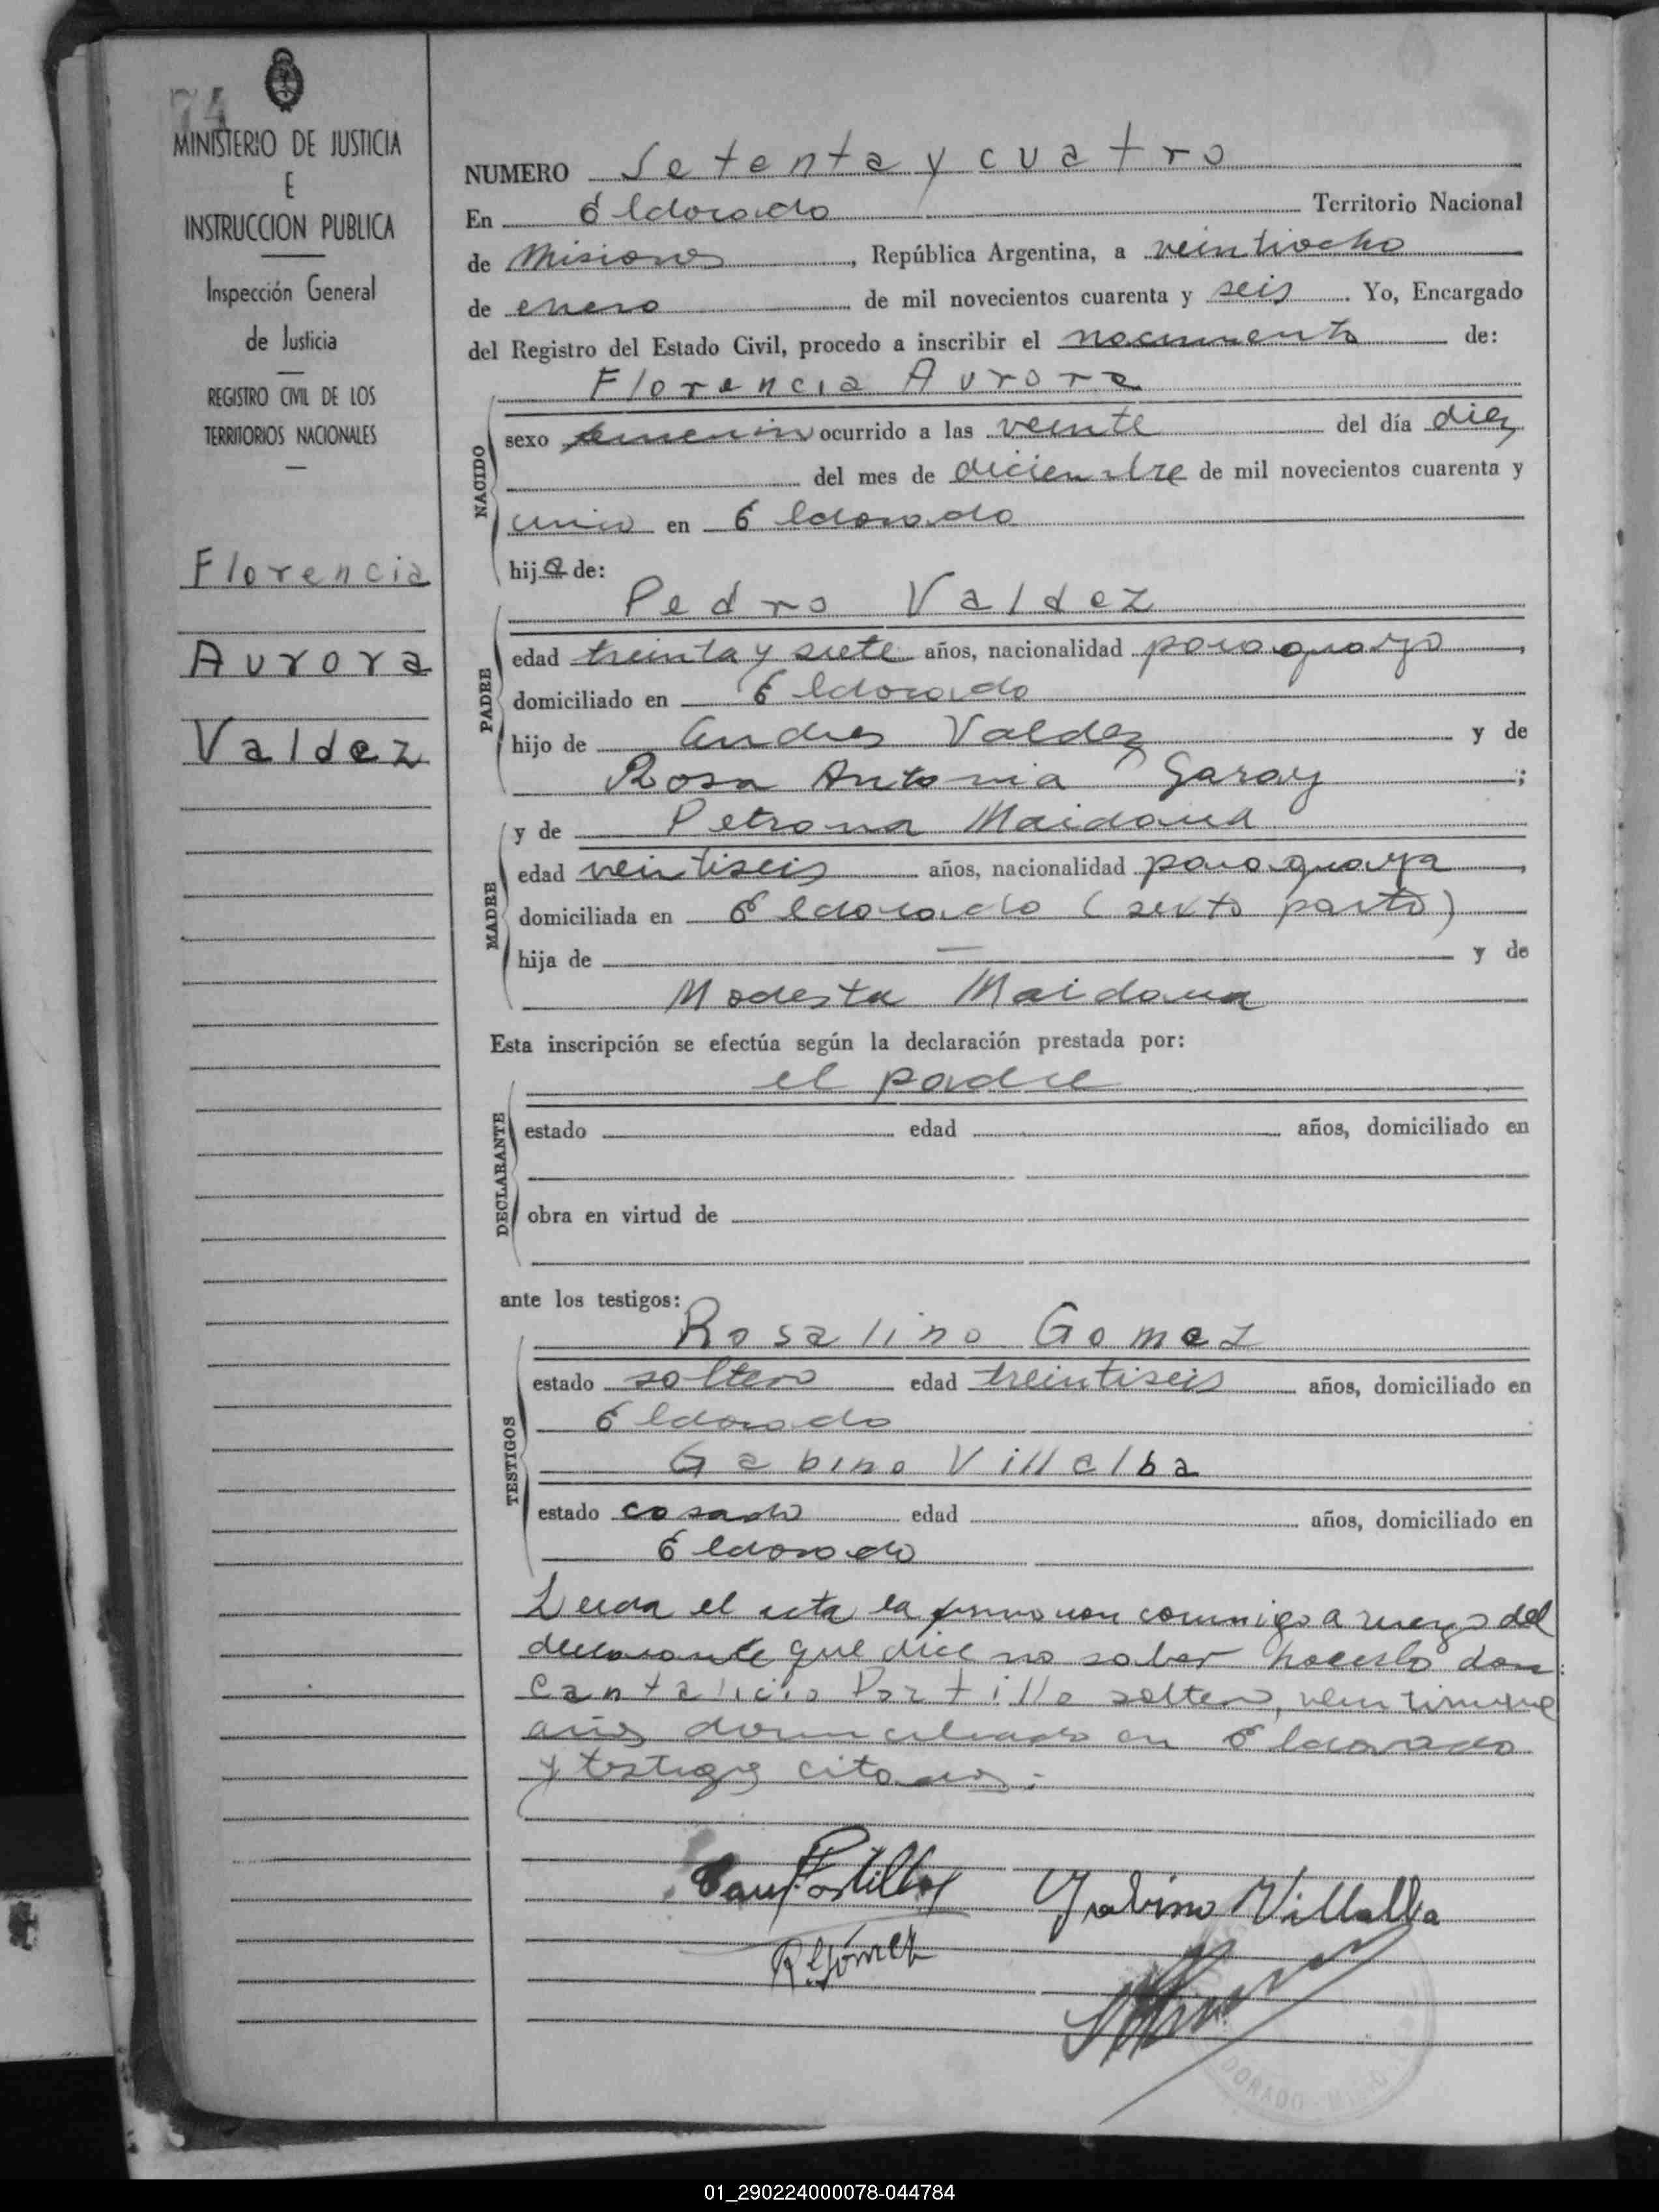 74
MINISTERIO DE JUSTICIA
E
INSTRUCCION PUBLICA
Inspección General
de Justicia
REGISTRO CIVIL DE LOS
TERRITORIOS NACIONALES
Florencia
Aurora
Valdez
NUMERO Setenta y cuatro
En Eldorado Territorio Nacional
de Misiones, República Argentina, a veintiocho
de enero de mil novecientos cuarenta y seis. Yo, Encargado
del Registro del Estado Civil, procedo a inscribir el nacimiento de:
Florencia Aurora
NACIDO
sexo femenino ocurrido a las veinte del día diez
del mes de diciembre de mil novecientos cuarenta y
uno en Eldorado
hija de:
Pedro Valdez
PADRE
edad treinta y siete años, nacionalidad paraguayo,
domiciliado en Eldorado
hijo de Andres Valdez y de
Rosa Antonia Garay;
y de Petrona Maidana
MADRE
edad veintiseis años, nacionalidad paraguaya,
domiciliada en Eldorado (sexto parto)
hija de — y de
Modesta Maidana
Esta inscripción se efectúa según la declaración prestada por:
el padre
DECLARANTE
estado edad años, domiciliado en
obra en virtud de
ante los testigos:
Rosalino Gomez
TESTIGOS
estado soltero edad treintiseis años, domiciliado en
Eldorado
Gabino Villalba
estado casado edad años, domiciliado en
Eldorado
Leida el acta la firmaron conmigo a ruego del
declarante que dice no saber hacerlo don
Cantalicio Portillo soltero, veintinueve
años domiciliado en Eldorado
y testigos citados.
Cant Portillo
Gabino Villalba
R. Gómez
DORADO - MIS
01_290224000078-044784